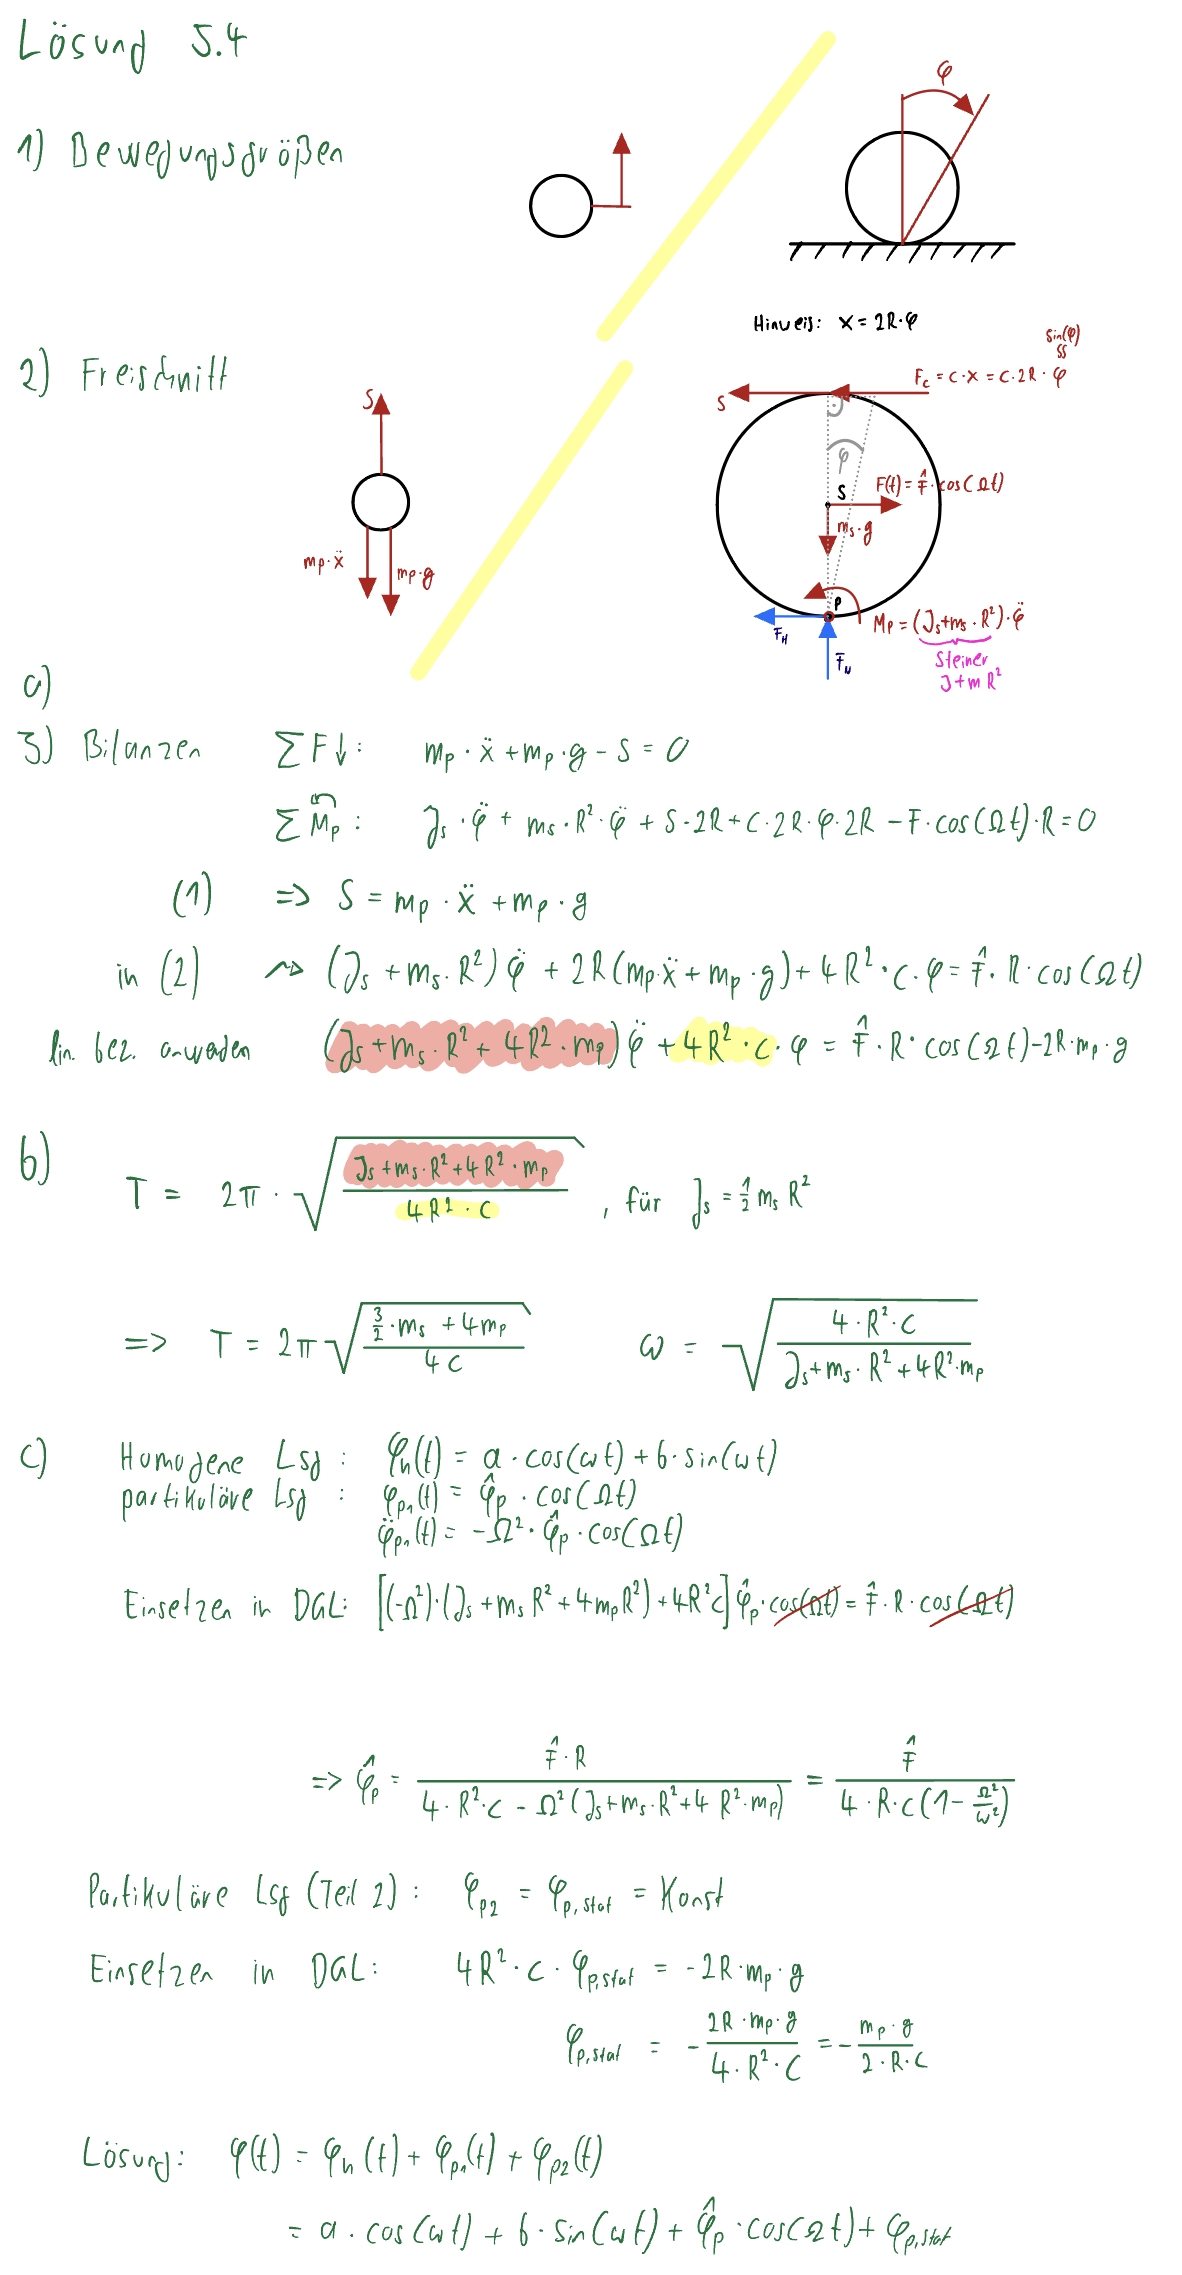 Lösung 5.4
φ
1) Bewegungsgrößen
Hinweis: x = 2R·φ
2) Freischnitt
sin(φ)
≈
F_c = c·x = c·2R·φ
S
S
φ
S
F(t) = F̂·cos(Ωt)
m_s·g
m_p·ẍ
m_p·g
P
M_P = (J_s+m_s·R²)·φ̈
F_H
F_N
Steiner
J+mR²
a)
3) Bilanzen ∑F↓: m_p·ẍ + m_p·g - S = 0
∑M_P: J_s·φ̈ + m_s·R²·φ̈ + S·2R + c·2R·φ·2R - F·cos(Ωt)·R = 0
(1) => S = m_p·ẍ + m_p·g
in (2) ⇝ (J_s + m_s·R²)φ̈ + 2R(m_p·ẍ + m_p·g) + 4R²·c·φ = F̂·R·cos(Ωt)
lin. bez. anwenden (J_s + m_s·R² + 4R²·m_p)φ̈ + 4R²·c·φ = F̂·R·cos(Ωt) - 2R·m_p·g
b) T = 2π·√((J_s + m_s·R² + 4R²·m_p)/(4R²·c)), für J_s = ½ m_s R²
=> T = 2π√((3/2·m_s + 4m_p)/(4c)) ω = √((4·R²·c)/(J_s + m_s·R² + 4R²·m_p))
c) Homogene Lsg: φ_h(t) = a·cos(ωt) + b·sin(ωt)
partikuläre Lsg: φ_p1(t) = φ̂_p·cos(Ωt)
φ̈_p1(t) = -Ω²·φ̂_p·cos(Ωt)
Einsetzen in DGL: [(-Ω²)·(J_s + m_s R² + 4m_p R²) + 4R²c] φ̂_p·cos(Ωt) = F̂·R·cos(Ωt)
=> φ̂_p = (F̂·R)/(4·R²·c - Ω²(J_s + m_s·R² + 4R²·m_p)) = F̂/(4·R·c(1 - Ω²/ω²))
Partikuläre Lsg (Teil 2): φ_p2 = φ_p,stat = Konst
Einsetzen in DGL: 4R²·c·φ_p,stat = -2R·m_p·g
φ_p,stat = -(2R·m_p·g)/(4·R²·c) = -(m_p·g)/(2·R·c)
Lösung: φ(t) = φ_h(t) + φ_p1(t) + φ_p2(t)
= a·cos(ωt) + b·sin(ωt) + φ̂_p·cos(Ωt) + φ_p,stat